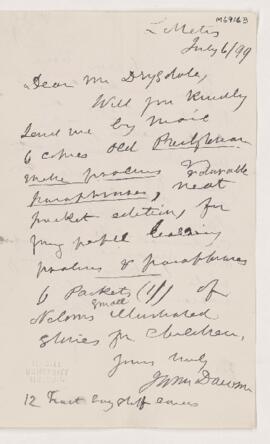 M69163
L. Metis
July 6/99
Dear Mr Drysdale,
Will you kindly
send me by mail
6 copies old Presbyterian
psalms & durable
paraphrases, neat
pocket edition, for
young people learning
psalms & paraphrases
6 Packets (1/) of
small
Nelsons illustrated
stories for children,
Yours truly
J Wm Dawson
12 stiff covers